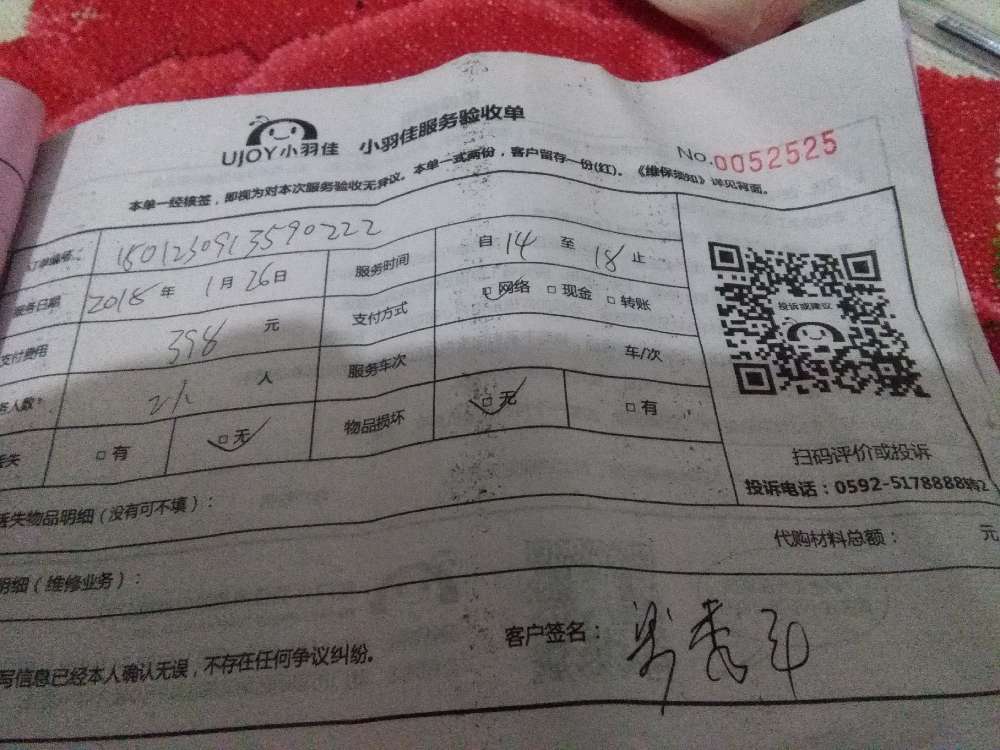 UJOY小羽佳 小羽佳服务验收单
No.0052525
本单一经核签，即视为对本次服务验收无异议。本单一式两份，客户留存一份(红)。《维保须知》详见背面。
订单编号： 1801230913590222
服务日期 2018年 1月26日 服务时间 自 14 至 18 止
支付费用 398 元 支付方式 □网络 □现金 □转账
务人数 2人 人 服务车次 车/次
丢失 □有 □无 物品损坏 □无 □有
投诉或建议
扫码评价或投诉
投诉电话：0592-5178888转2
丢失物品明细（没有可不填）：
代购材料总额： 元
明细（维修业务）：
客户签名：
写信息已经本人确认无误，不存在任何争议纠纷。